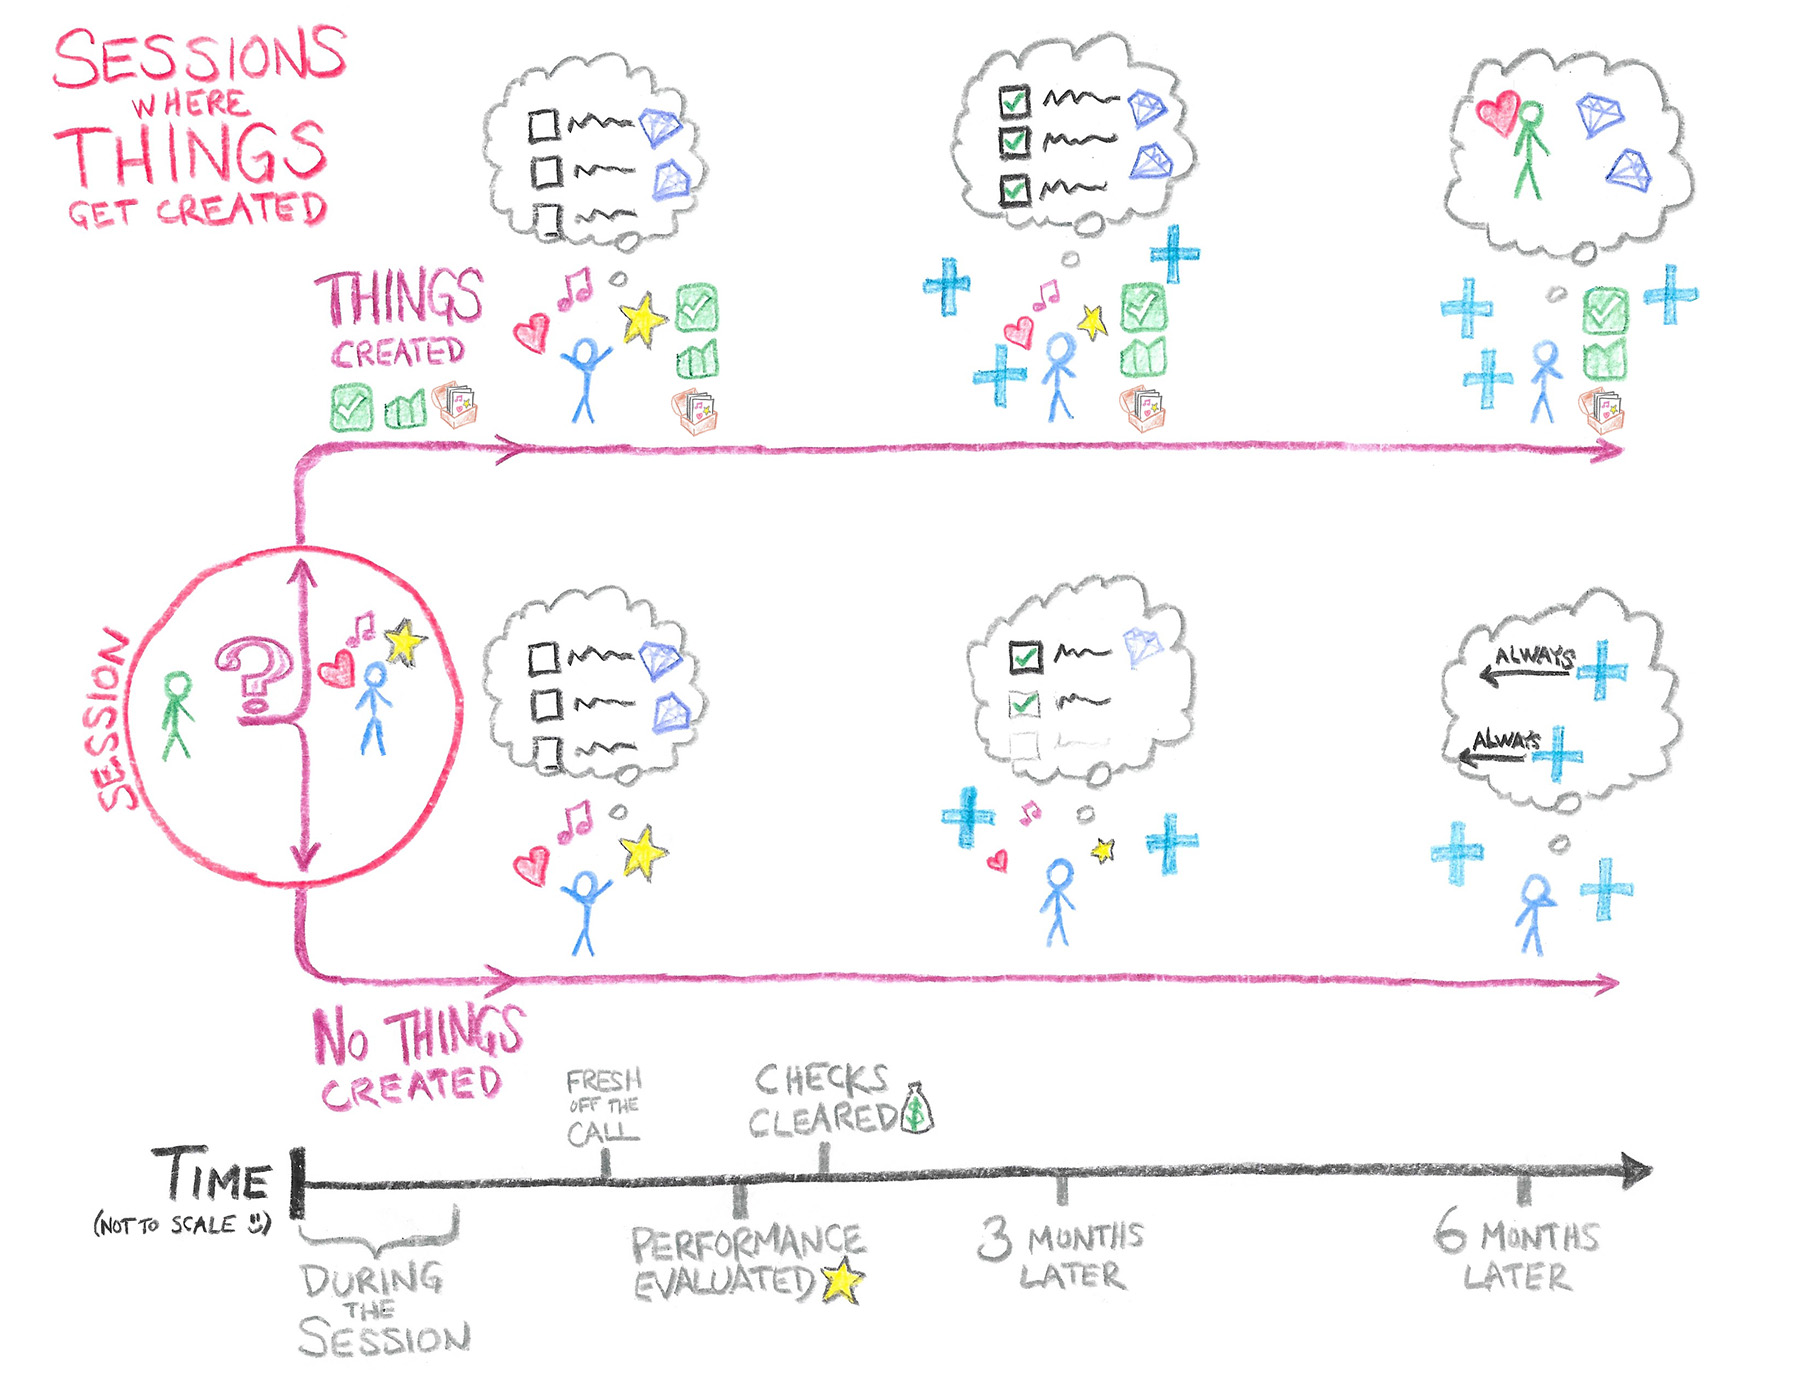 SESSIONS
WHERE
THINGS
GET CREATED
THINGS
CREATED
SESSION
?
ALWAYS
ALWAYS
NO THINGS
CREATED
FRESH
OFF THE
CALL
CHECKS
CLEARED
$
TIME
(NOT TO SCALE :))
DURING
THE
SESSION
PERFORMANCE
EVALUATED
3 MONTHS
LATER
6 MONTHS
LATER